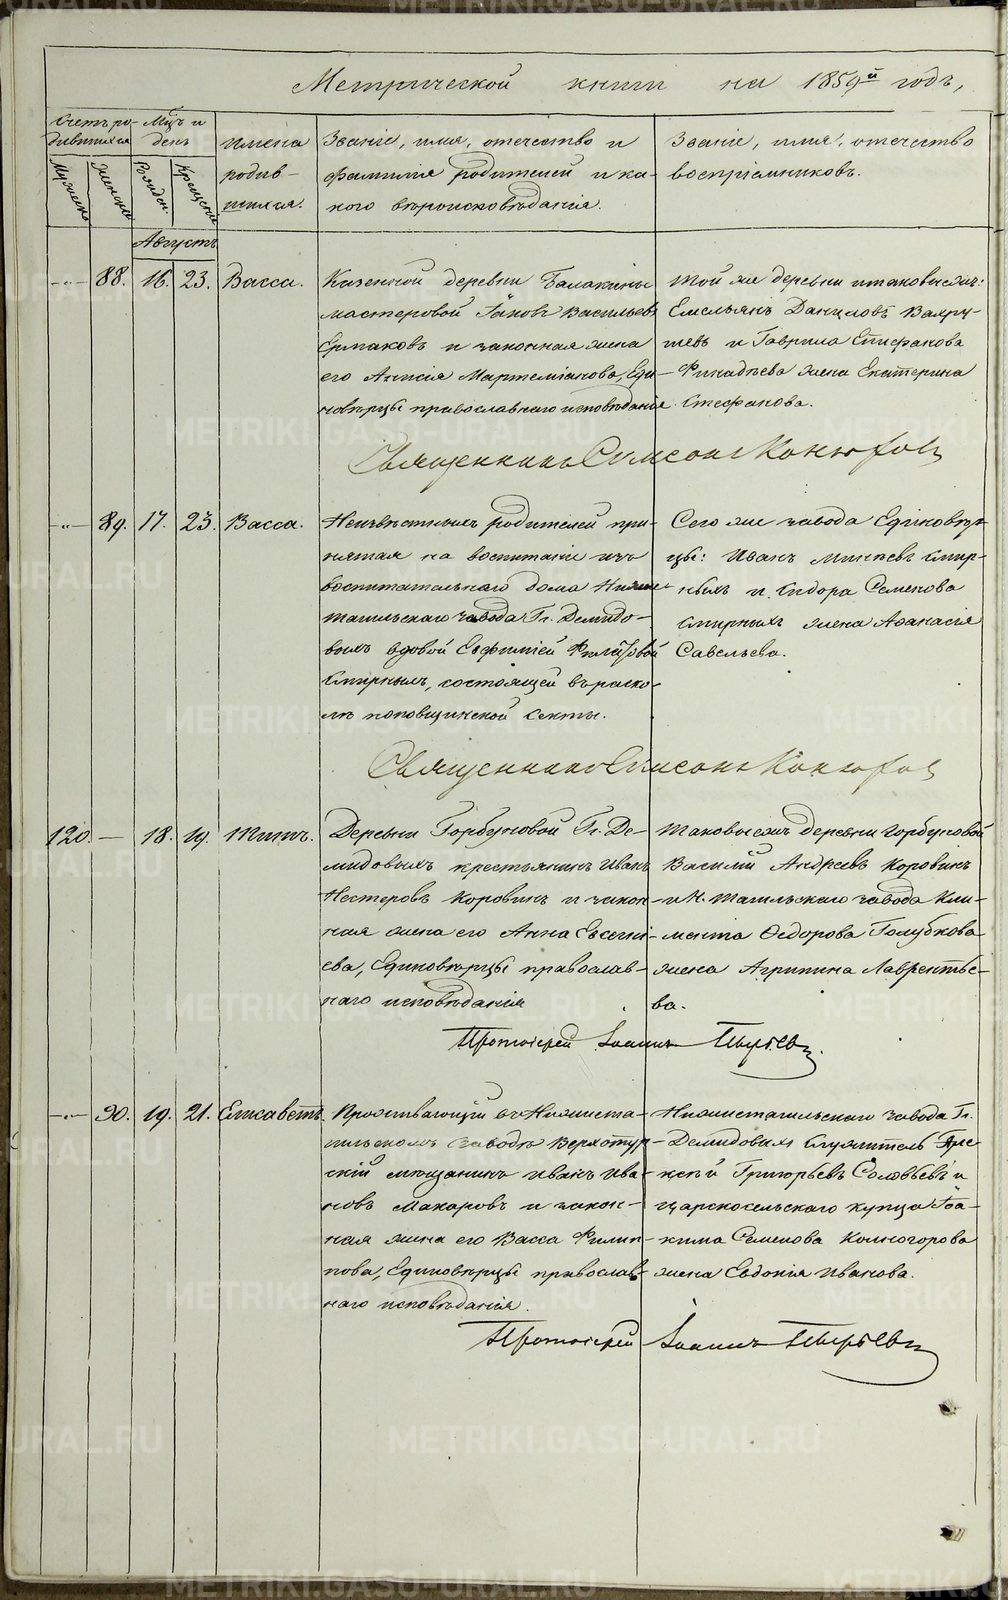 Метрической книги на 1859й годъ,
Счетъ родившихся
Мцъ и день
Имена родившихся.
Званіе, имя, отечество и фамилія родителей и какого вѣроисповѣданія.
Званіе, имя, отечество воспріемниковъ.
Мужеска
Женска
Рожден.
Крещенія
Августъ
-"- 88. 16. 23. Васса.
Казенной деревни Балакины
мастеровой Іаковъ Васильевъ
Ермаковъ и законная жена
его Анисія Мартеміанова, Еди-
новѣрцы православнаго исповѣданія
Той же деревни
Емельянъ Даниловъ Вахру-
шевъ и Гаврила Епифанова
жена Екатерина
Стефанова.
Священникъ Симеонъ Конюховъ
-"- 89. 17. 23. Васса.
Неизвѣстныхъ родителей при-
нятая на воспитаніе изъ
воспитательнаго дома Нижне-
тагильскаго завода Гг. Демидо-
выхъ вдовой Евфиміей
Смирныхъ, состоящей въ раско-
лѣ поповщинской секты.
Сего же завода Единовѣр-
цы: Иванъ Минѣевъ Смир-
ныхъ и Сидора Семенова
Смирныхъ жена Аѳанасія
Савельева.
Священникъ Симеонъ Конюховъ
120. — 18. 19. Титъ.
Деревни Горбуновой Гг. Де-
мидовыхъ крестьянинъ Иванъ
Нестеровъ Коровинъ и закон-
ная жена его Анна Евсеи-
ева, Единовѣрцы православ-
наго исповѣданія
Таковыежъ деревни Горбуновой
Василій Андреевъ Коровинъ
и Н. Тагильскаго завода Кли-
мента Ѳедорова Голубкова
жена Агрипина Лаврентье-
ва.
Протоіерей Іоаннъ Пырьевъ
-"- 90. 19. 21. Елисаветъ.
Проживающій въ Нижнета-
гильскомъ заводѣ Верхотур-
скій мѣщанинъ Иванъ Ива-
новъ Макаровъ и закон-
ная жена его Васса Филип-
пова, Единовѣрцы православ-
наго исповѣданія.
Нижнетагильскаго завода Гг.
Демидовыхъ служитель
Григорьевъ Соловьевъ и
царскосельскаго купца Іоа-
кима Семенова Колногорова
жена Евдокія Иванова.
Протоіерей Іоаннъ Пырьевъ
METRIKI.GASO-URAL.RU